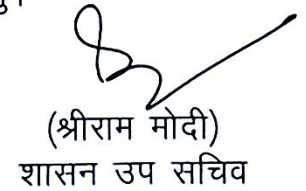 (श्रीराम मोदी)
शासन उप सचिव